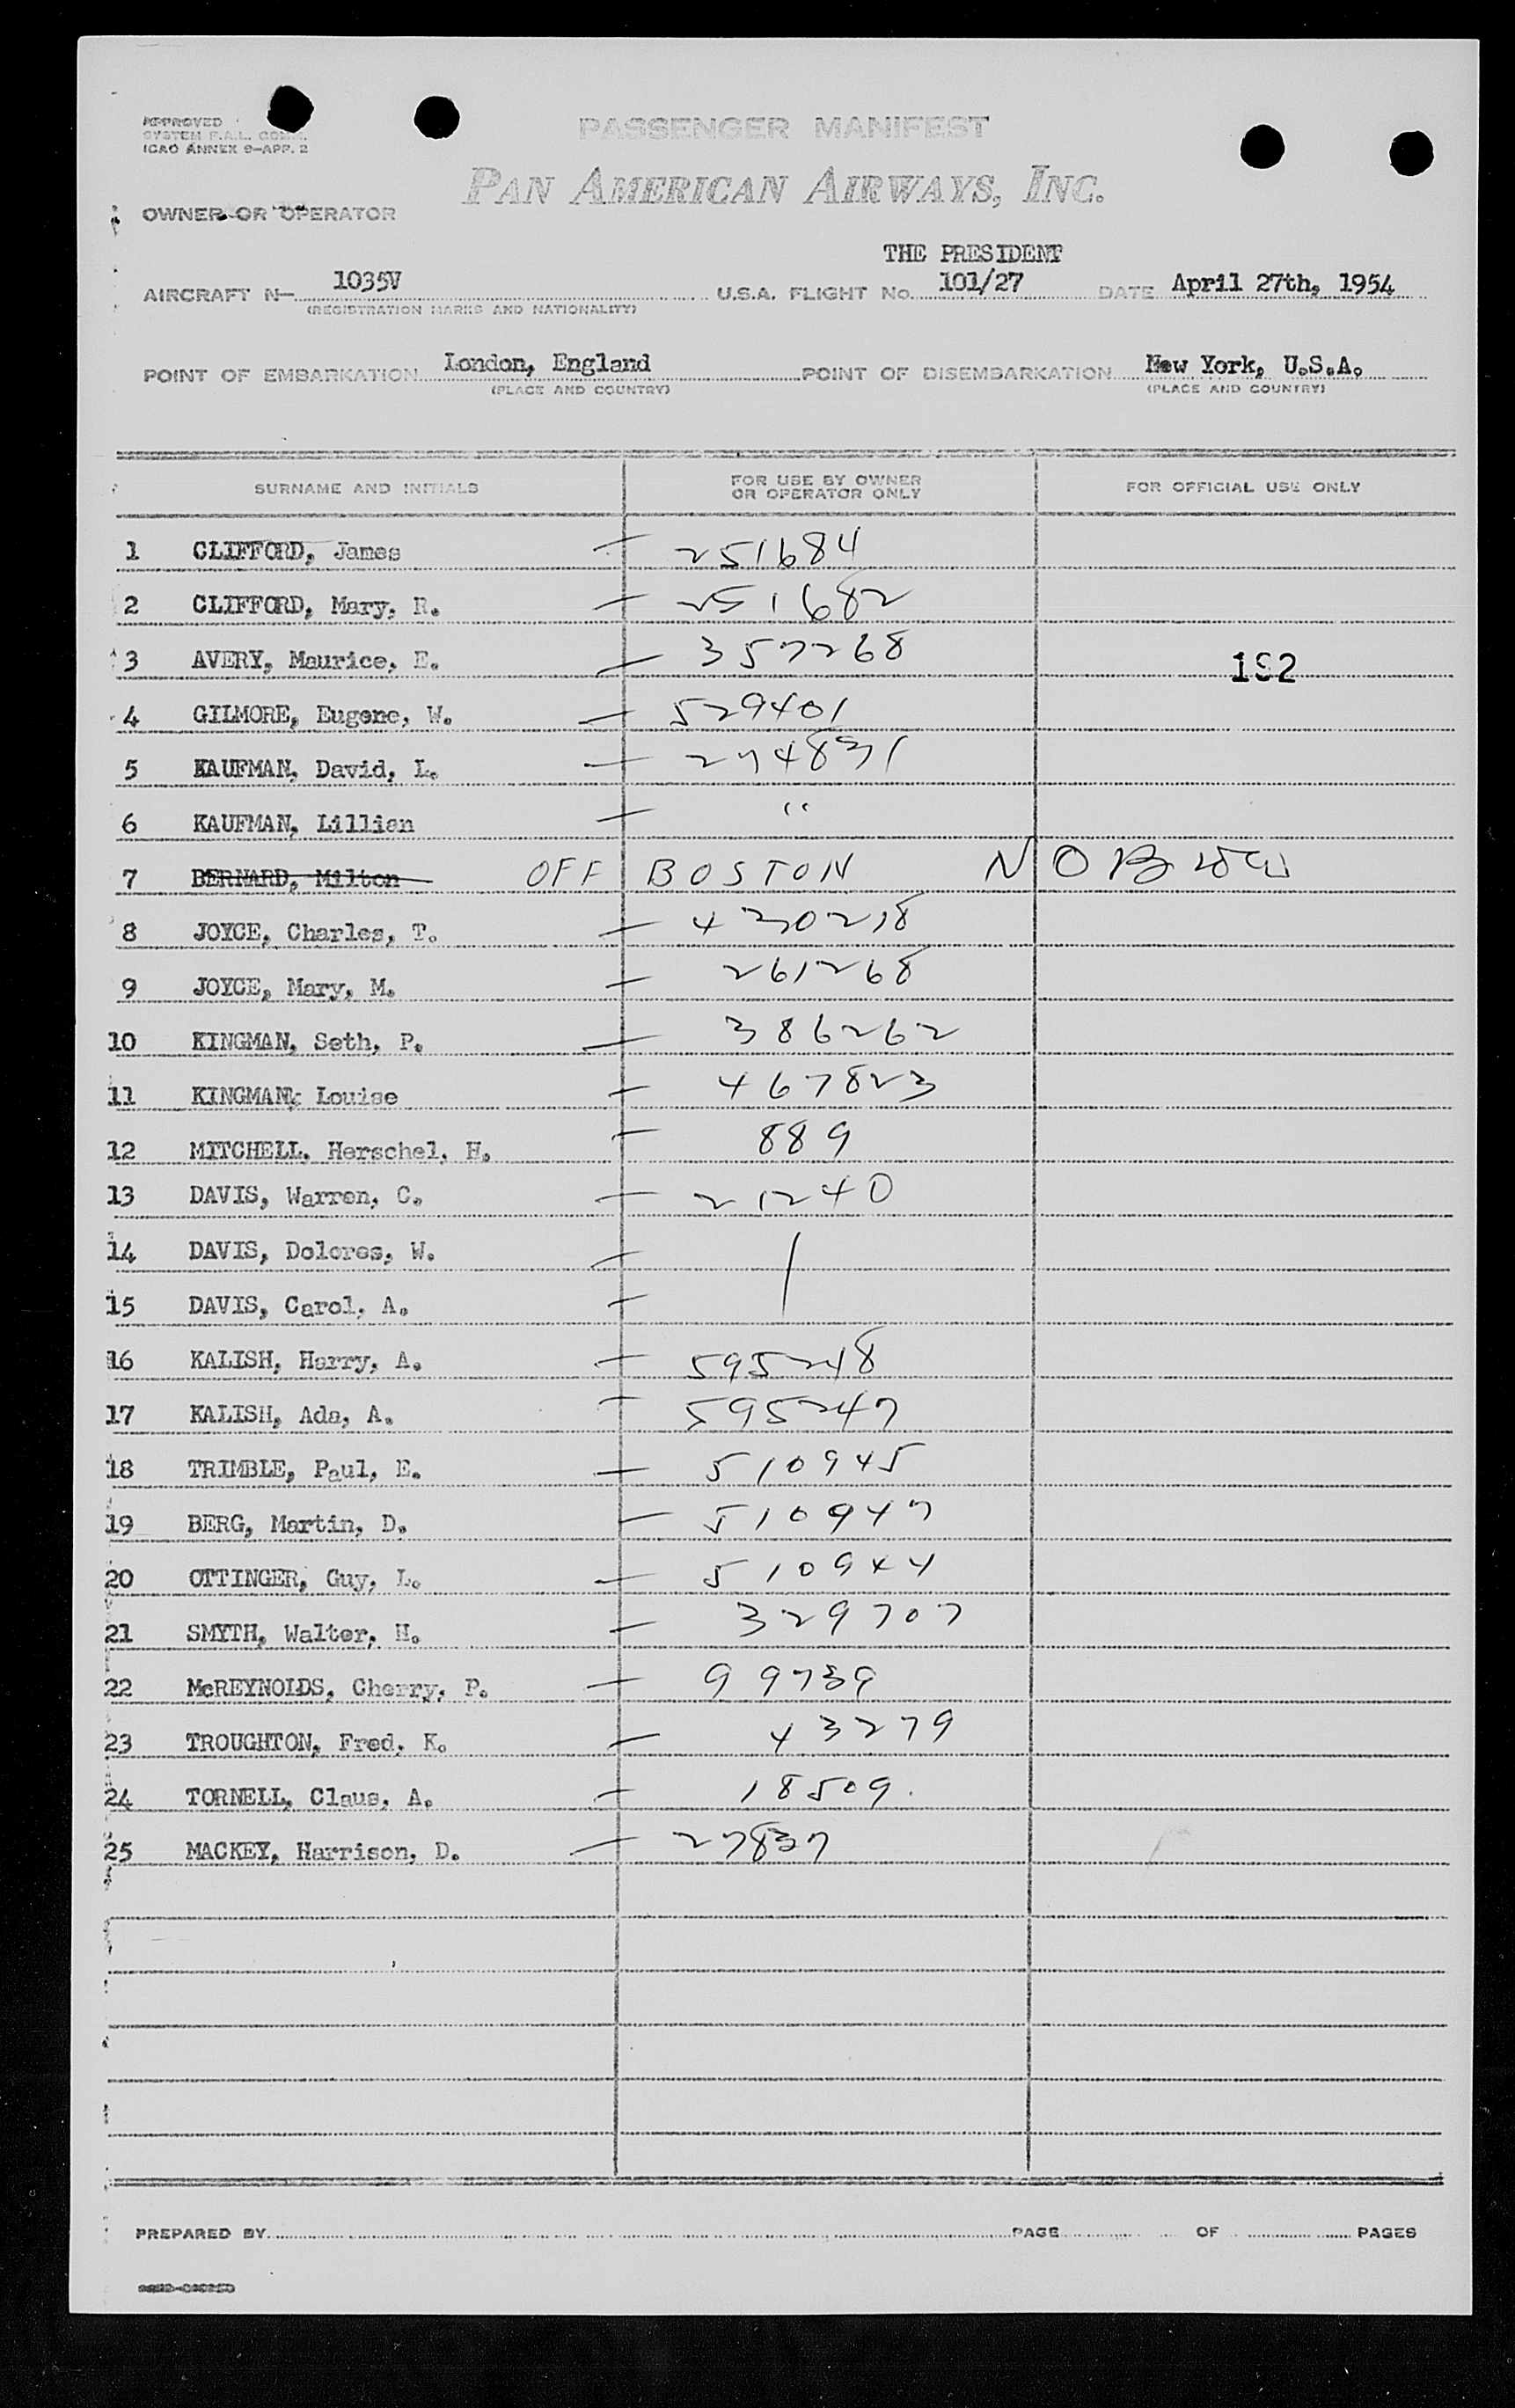 APPROVED
SYSTEM F.A.L. COMM.
ICAO ANNEX 9-APP. 2
PASSENGER MANIFEST
PAN AMERICAN AIRWAYS, INC.
OWNER OR OPERATOR
THE PRESIDENT
AIRCRAFT N— 1035V U.S.A. FLIGHT No. 101/27 DATE April 27th, 1954
(REGISTRATION MARKS AND NATIONALITY)
POINT OF EMBARKATION London, England POINT OF DISEMBARKATION New York, U.S.A.
(PLACE AND COUNTRY) (PLACE AND COUNTRY)
SURNAME AND INITIALS FOR USE BY OWNER OR OPERATOR ONLY FOR OFFICIAL USE ONLY
1 CLIFFORD, James — 251684
2 CLIFFORD, Mary, R. — 251682
3 AVERY, Maurice, E. — 357268 192
4 GILMORE, Eugene, W. — 529401
5 KAUFMAN, David, L. — 274831
6 KAUFMAN, Lillian — "
7 BERNARD, Milton OFF BOSTON NO
8 JOYCE, Charles, T. — 430218
9 JOYCE, Mary, M. — 261268
10 KINGMAN, Seth, P. — 386262
11 KINGMAN, Louise — 467823
12 MITCHELL, Herschel, H. — 889
13 DAVIS, Warren, C. — 21240
14 DAVIS, Dolores, W. —
15 DAVIS, Carol, A. —
16 KALISH, Harry, A. — 595248
17 KALISH, Ada, A. — 595247
18 TRIMBLE, Paul, E. — 510945
19 BERG, Martin, D. — 510947
20 OTTINGER, Guy, L. — 510944
21 SMYTH, Walter, H. — 329707
22 McREYNOLDS, Cherry, P. — 99739
23 TROUGHTON, Fred, K. — 43279
24 TORNELL, Claus, A. — 18509.
25 MACKEY, Harrison, D. — 27837
PREPARED BY PAGE OF PAGES